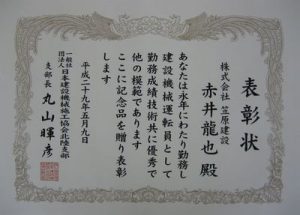 表彰状
株式会社 笠原建設
赤井龍也殿
あなたは永年にわたり勤務し
建設機械運転員として
勤務成績技術共に優秀で
他の模範であります
ここに記念品を贈り表彰
します
平成二十九年五月九日
一般社団法人日本建設機械施工協会北陸支部
支部長 丸山暉彦